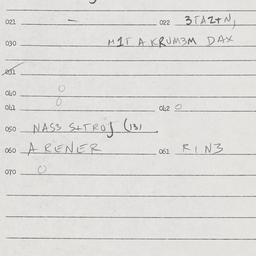 021 - 022 3TAZ+N,
030 M1T A KRUM3M DAX
031
040 0
041 0 042 0
050 NAS3 S+TROJ (131
060 A RENER 061 RIN3
070 0